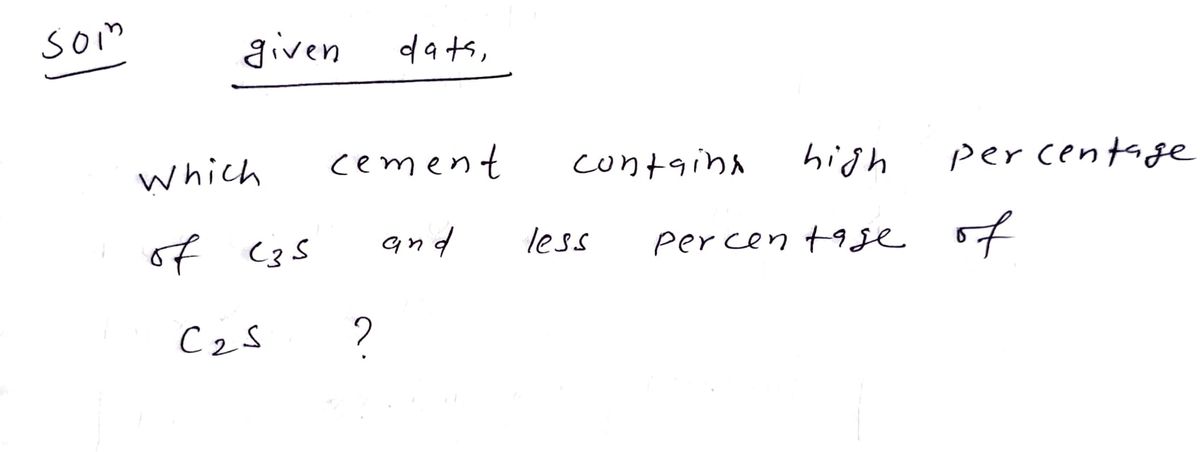 Soln given data,
which cement contains high percentage
of C3S and less percentage of
C2S ?